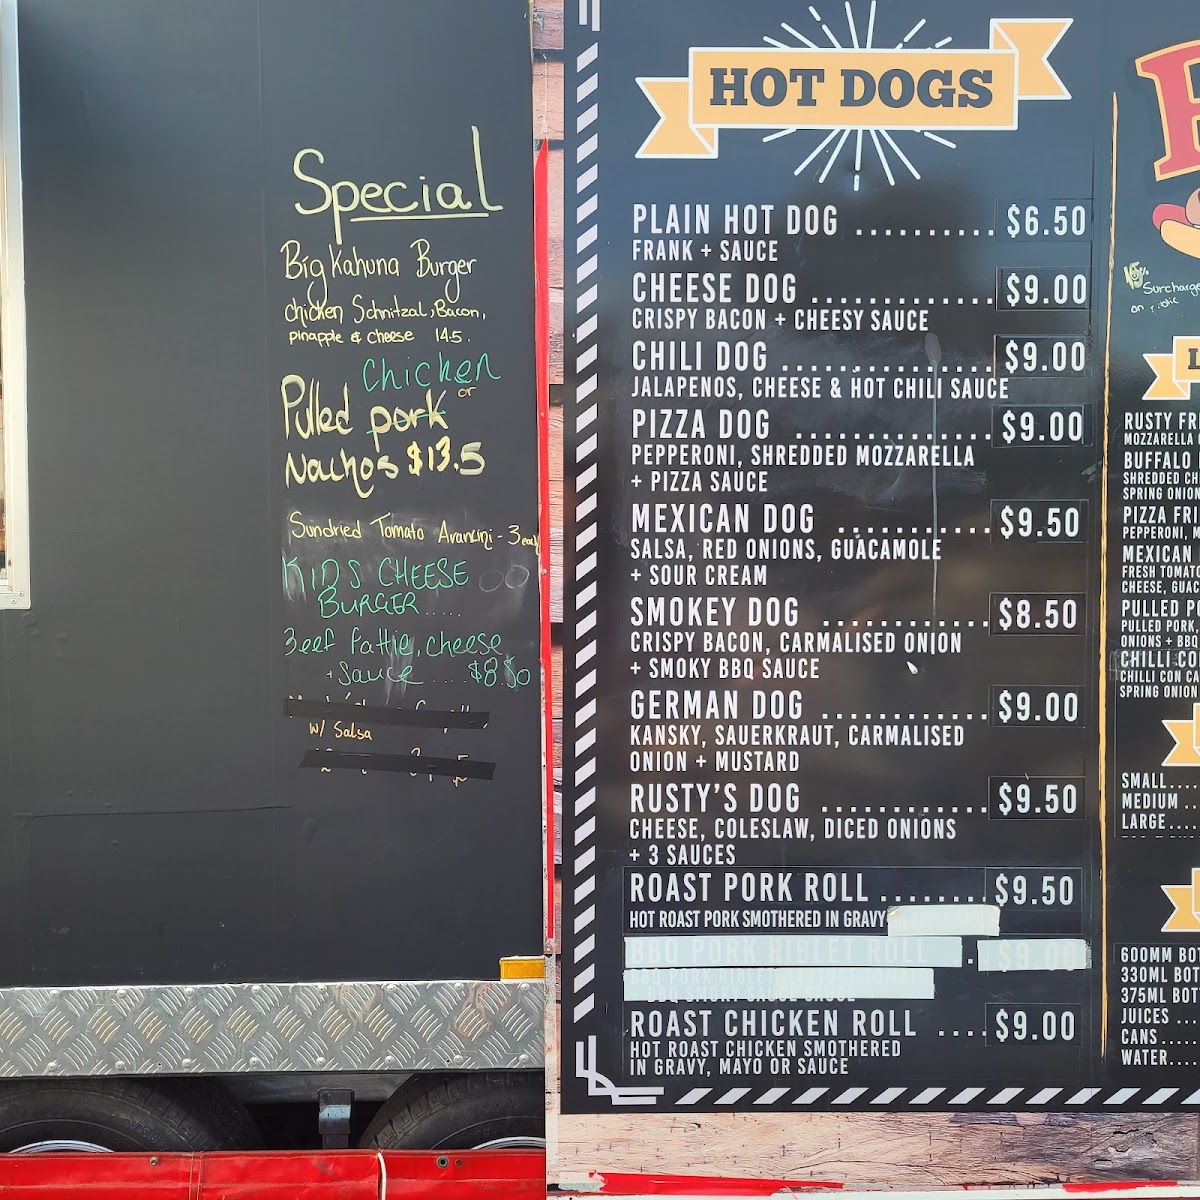 Special
Big Kahuna Burger
Chicken Schnitzal, Bacon,
pinapple & cheese 14.5.
Chicken
or
Pulled pork
Nachos $13.5
Sundried Tomato Arancini - 3 each
KIDS CHEESE
BURGER.....
Beef Pattie, cheese
+ Sauce .... $8.50
w/ Salsa
HOT DOGS
PLAIN HOT DOG .......... $6.50
FRANK + SAUCE
CHEESE DOG .............. $9.00
CRISPY BACON + CHEESY SAUCE
CHILI DOG ................ $9.00
JALAPENOS, CHEESE & HOT CHILI SAUCE
PIZZA DOG ............... $9.00
PEPPERONI, SHREDDED MOZZARELLA
+ PIZZA SAUCE
MEXICAN DOG ............ $9.50
SALSA, RED ONIONS, GUACAMOLE
+ SOUR CREAM
SMOKEY DOG ............. $8.50
CRISPY BACON, CARMALISED ONION
+ SMOKY BBQ SAUCE
GERMAN DOG ............. $9.00
KANSKY, SAUERKRAUT, CARMALISED
ONION + MUSTARD
RUSTY'S DOG ............. $9.50
CHEESE, COLESLAW, DICED ONIONS
+ 3 SAUCES
ROAST PORK ROLL ........ $9.50
HOT ROAST PORK SMOTHERED IN GRAVY
BBQ PORK RIBLET ROLL . $9.00
ROAST CHICKEN ROLL .... $9.00
HOT ROAST CHICKEN SMOTHERED
IN GRAVY, MAYO OR SAUCE
15%
Surcharge
on
RUSTY FRI
MOZZARELLA
BUFFALO
SHREDDED CH
SPRING ONION
PIZZA FRI
PEPPERONI, M
MEXICAN
FRESH TOMATO
CHEESE, GUAC
PULLED P
PULLED PORK,
ONIONS + BBQ
CHILLI CO
CHILLI CON CA
SPRING ONION
SMALL....
MEDIUM ..
LARGE....
600MM BOT
330ML BOT
375ML BOT
JUICES ...
CANS.....
WATER....